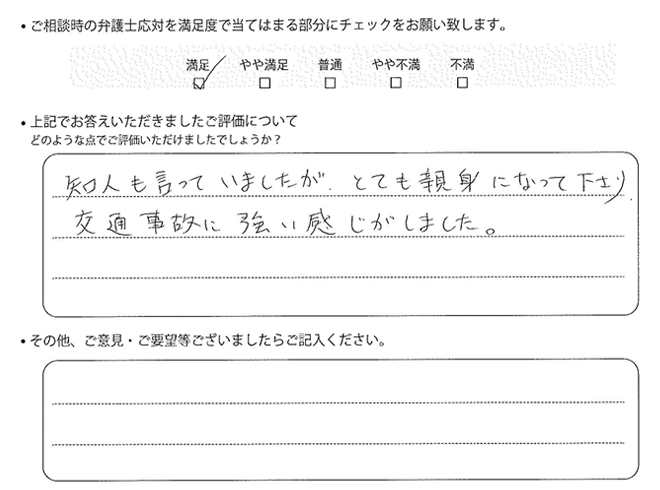 ・ご相談時の弁護士応対を満足度で当てはまる部分にチェックをお願い致します。
満足 やや満足 普通 やや不満 不満
・上記でお答えいただきましたご評価について
どのような点でご評価いただけましたでしょうか？
知人も言っていましたが、とても親身になって下さり、
交通事故に強い感じがしました。
・その他、ご意見・ご要望等ございましたらご記入ください。